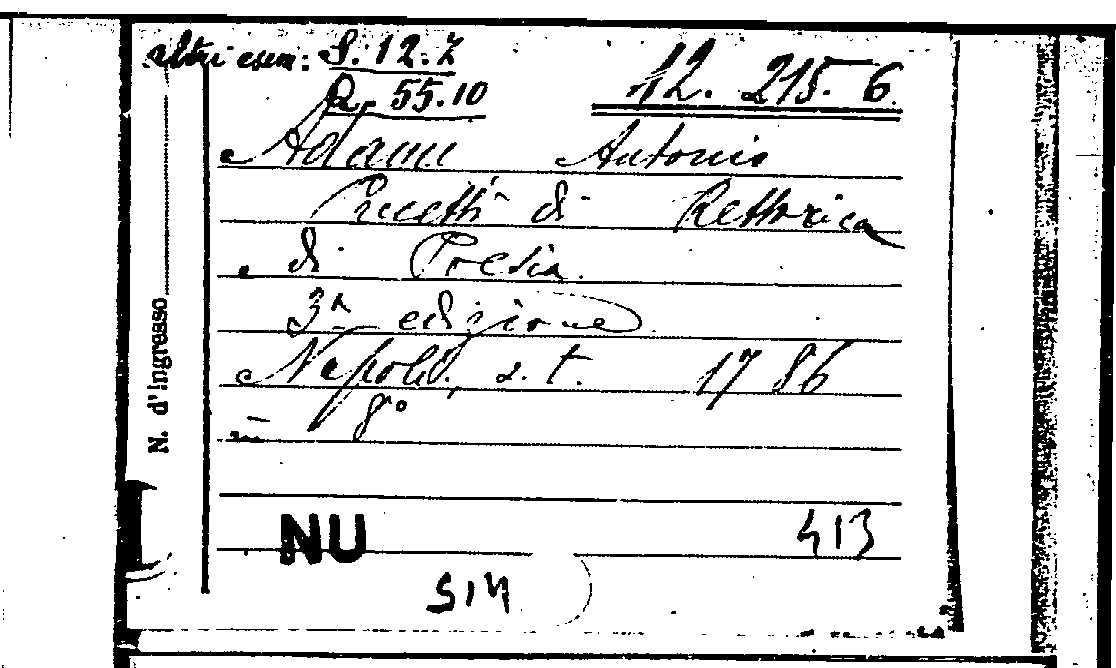 altri esem: S. 12. 7
Q. 55.10
12. 215. 6
Adami Antonio
Precetti di Rettorica
e di Poesia.
3ª edizione
Napoli, s. t. 1786
in 8°
NU
413
514
N. d'Ingresso